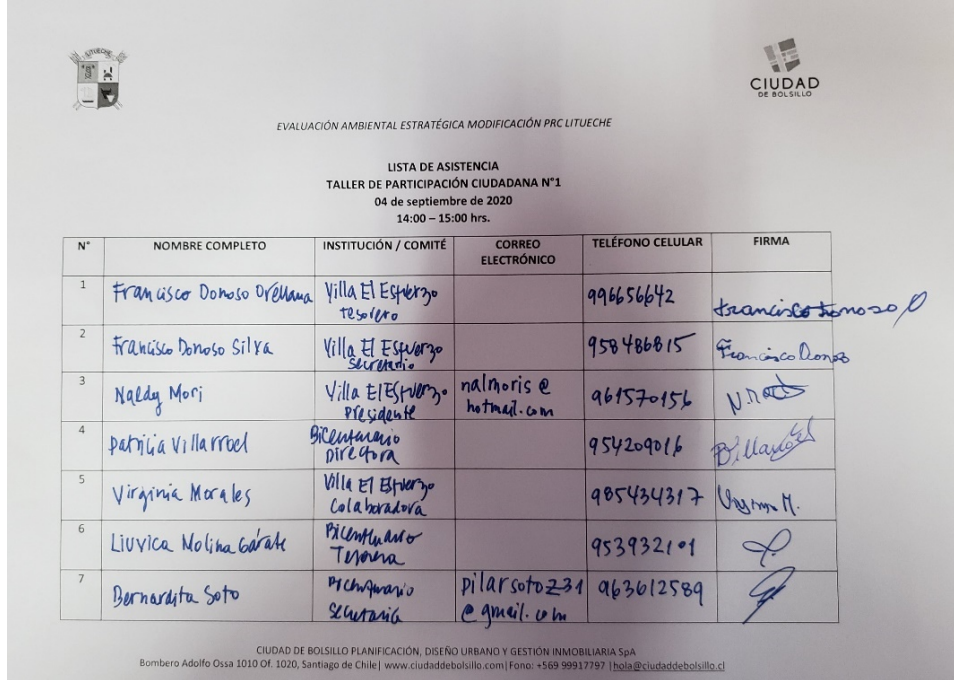 LITUECHE
CIUDAD
DE BOLSILLO
EVALUACIÓN AMBIENTAL ESTRATÉGICA MODIFICACIÓN PRC LITUECHE
LISTA DE ASISTENCIA
TALLER DE PARTICIPACIÓN CIUDADANA N°1
04 de septiembre de 2020
14:00 – 15:00 hrs.
N° NOMBRE COMPLETO INSTITUCIÓN / COMITÉ CORREO ELECTRÓNICO TELÉFONO CELULAR FIRMA
1 Francisco Donoso Orellana Villa El Esfuerzo tesorero 996656642 Francisco Donoso O
2 Francisco Donoso Silva Villa El Esfuerzo Secretario 958486815 Francisco Donoso
3 Naldy Mori Villa El Esfuerzo Presidente nalmoris@hotmail.com 961570156
4 Patricia Villarroel Bicentenario Directora 954209016
5 Virginia Morales Villa El Esfuerzo Colaboradora 985434317 M.
6 Liuvica Molina Gárate Bicentenario Tesorera 953932101
7 Bernardita Soto Bicentenario Secretaria pilarsotoz31@gmail.com 963612589
CIUDAD DE BOLSILLO PLANIFICACIÓN, DISEÑO URBANO Y GESTIÓN INMOBILIARIA SpA
Bombero Adolfo Ossa 1010 Of. 1020, Santiago de Chile| www.ciudaddebolsillo.com|Fono: +569 99917797 |hola@ciudaddebolsillo.cl